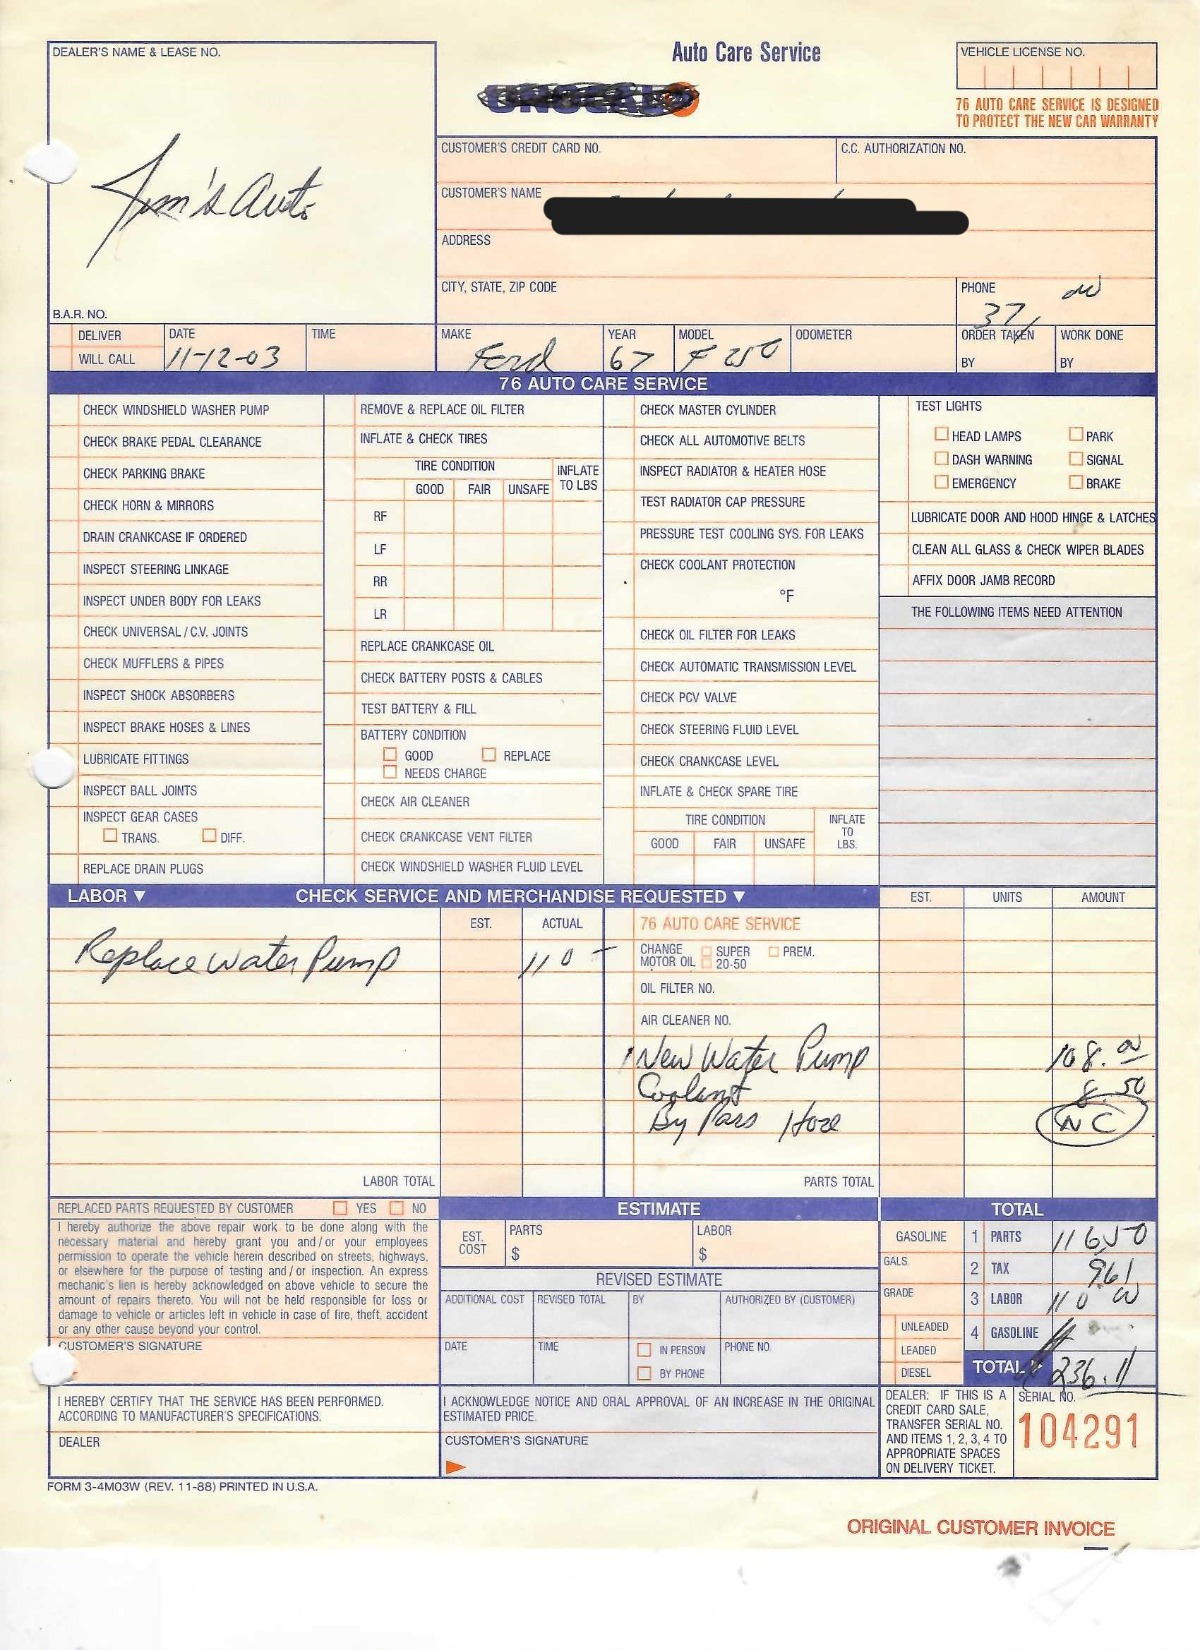 DEALER'S NAME & LEASE NO.
Jim's Auto
B.A.R. NO.
Auto Care Service
UNOCAL
VEHICLE LICENSE NO.
76 AUTO CARE SERVICE IS DESIGNED
TO PROTECT THE NEW CAR WARRANTY
CUSTOMER'S CREDIT CARD NO.
C.C. AUTHORIZATION NO.
CUSTOMER'S NAME
ADDRESS
CITY, STATE, ZIP CODE
PHONE
37
DELIVER
WILL CALL
DATE
11-12-03
TIME
MAKE
Ford
YEAR
67
MODEL
F 250
ODOMETER
ORDER TAKEN
BY
WORK DONE
BY
76 AUTO CARE SERVICE
CHECK WINDSHIELD WASHER PUMP
CHECK BRAKE PEDAL CLEARANCE
CHECK PARKING BRAKE
CHECK HORN & MIRRORS
DRAIN CRANKCASE IF ORDERED
INSPECT STEERING LINKAGE
INSPECT UNDER BODY FOR LEAKS
CHECK UNIVERSAL / C.V. JOINTS
CHECK MUFFLERS & PIPES
INSPECT SHOCK ABSORBERS
INSPECT BRAKE HOSES & LINES
LUBRICATE FITTINGS
INSPECT BALL JOINTS
INSPECT GEAR CASES
TRANS. DIFF.
REPLACE DRAIN PLUGS
REMOVE & REPLACE OIL FILTER
INFLATE & CHECK TIRES
TIRE CONDITION
INFLATE
TO LBS
GOOD FAIR UNSAFE
RF
LF
RR
LR
REPLACE CRANKCASE OIL
CHECK BATTERY POSTS & CABLES
TEST BATTERY & FILL
BATTERY CONDITION
GOOD REPLACE
NEEDS CHARGE
CHECK AIR CLEANER
CHECK CRANKCASE VENT FILTER
CHECK WINDSHIELD WASHER FLUID LEVEL
CHECK MASTER CYLINDER
CHECK ALL AUTOMOTIVE BELTS
INSPECT RADIATOR & HEATER HOSE
TEST RADIATOR CAP PRESSURE
PRESSURE TEST COOLING SYS. FOR LEAKS
CHECK COOLANT PROTECTION
°F
CHECK OIL FILTER FOR LEAKS
CHECK AUTOMATIC TRANSMISSION LEVEL
CHECK PCV VALVE
CHECK STEERING FLUID LEVEL
CHECK CRANKCASE LEVEL
INFLATE & CHECK SPARE TIRE
TIRE CONDITION
INFLATE
TO
LBS.
GOOD FAIR UNSAFE
TEST LIGHTS
HEAD LAMPS PARK
DASH WARNING SIGNAL
EMERGENCY BRAKE
LUBRICATE DOOR AND HOOD HINGE & LATCHES
CLEAN ALL GLASS & CHECK WIPER BLADES
AFFIX DOOR JAMB RECORD
THE FOLLOWING ITEMS NEED ATTENTION
LABOR ▼ CHECK SERVICE AND MERCHANDISE REQUESTED ▼
EST. UNITS AMOUNT
EST. ACTUAL
Replace Water Pump 110 -
LABOR TOTAL
76 AUTO CARE SERVICE
CHANGE
MOTOR OIL
SUPER PREM.
20-50
OIL FILTER NO.
AIR CLEANER NO.
1 New Water Pump 108.00
Coolant 8.50
By Pass Hose NC
PARTS TOTAL
REPLACED PARTS REQUESTED BY CUSTOMER YES NO
I hereby authorize the above repair work to be done along with the
necessary material and hereby grant you and/or your employees
permission to operate the vehicle herein described on streets, highways,
or elsewhere for the purpose of testing and/or inspection. An express
mechanic's lien is hereby acknowledged on above vehicle to secure the
amount of repairs thereto. You will not be held responsible for loss or
damage to vehicle or articles left in vehicle in case of fire, theft, accident
or any other cause beyond your control.
CUSTOMER'S SIGNATURE
ESTIMATE
EST.
COST
PARTS
$
LABOR
$
REVISED ESTIMATE
ADDITIONAL COST REVISED TOTAL BY AUTHORIZED BY (CUSTOMER)
DATE TIME IN PERSON PHONE NO.
BY PHONE
TOTAL
GASOLINE
GALS.
GRADE
UNLEADED
LEADED
DIESEL
1 PARTS 116.50
2 TAX 9.61
3 LABOR 110 00
4 GASOLINE
TOTAL 236.11
I HEREBY CERTIFY THAT THE SERVICE HAS BEEN PERFORMED.
ACCORDING TO MANUFACTURER'S SPECIFICATIONS.
DEALER
I ACKNOWLEDGE NOTICE AND ORAL APPROVAL OF AN INCREASE IN THE ORIGINAL
ESTIMATED PRICE.
CUSTOMER'S SIGNATURE
DEALER: IF THIS IS A
CREDIT CARD SALE,
TRANSFER SERIAL NO.
AND ITEMS 1, 2, 3, 4 TO
APPROPRIATE SPACES
ON DELIVERY TICKET.
SERIAL NO.
104291
FORM 3-4M03W (REV. 11-88) PRINTED IN U.S.A.
ORIGINAL CUSTOMER INVOICE